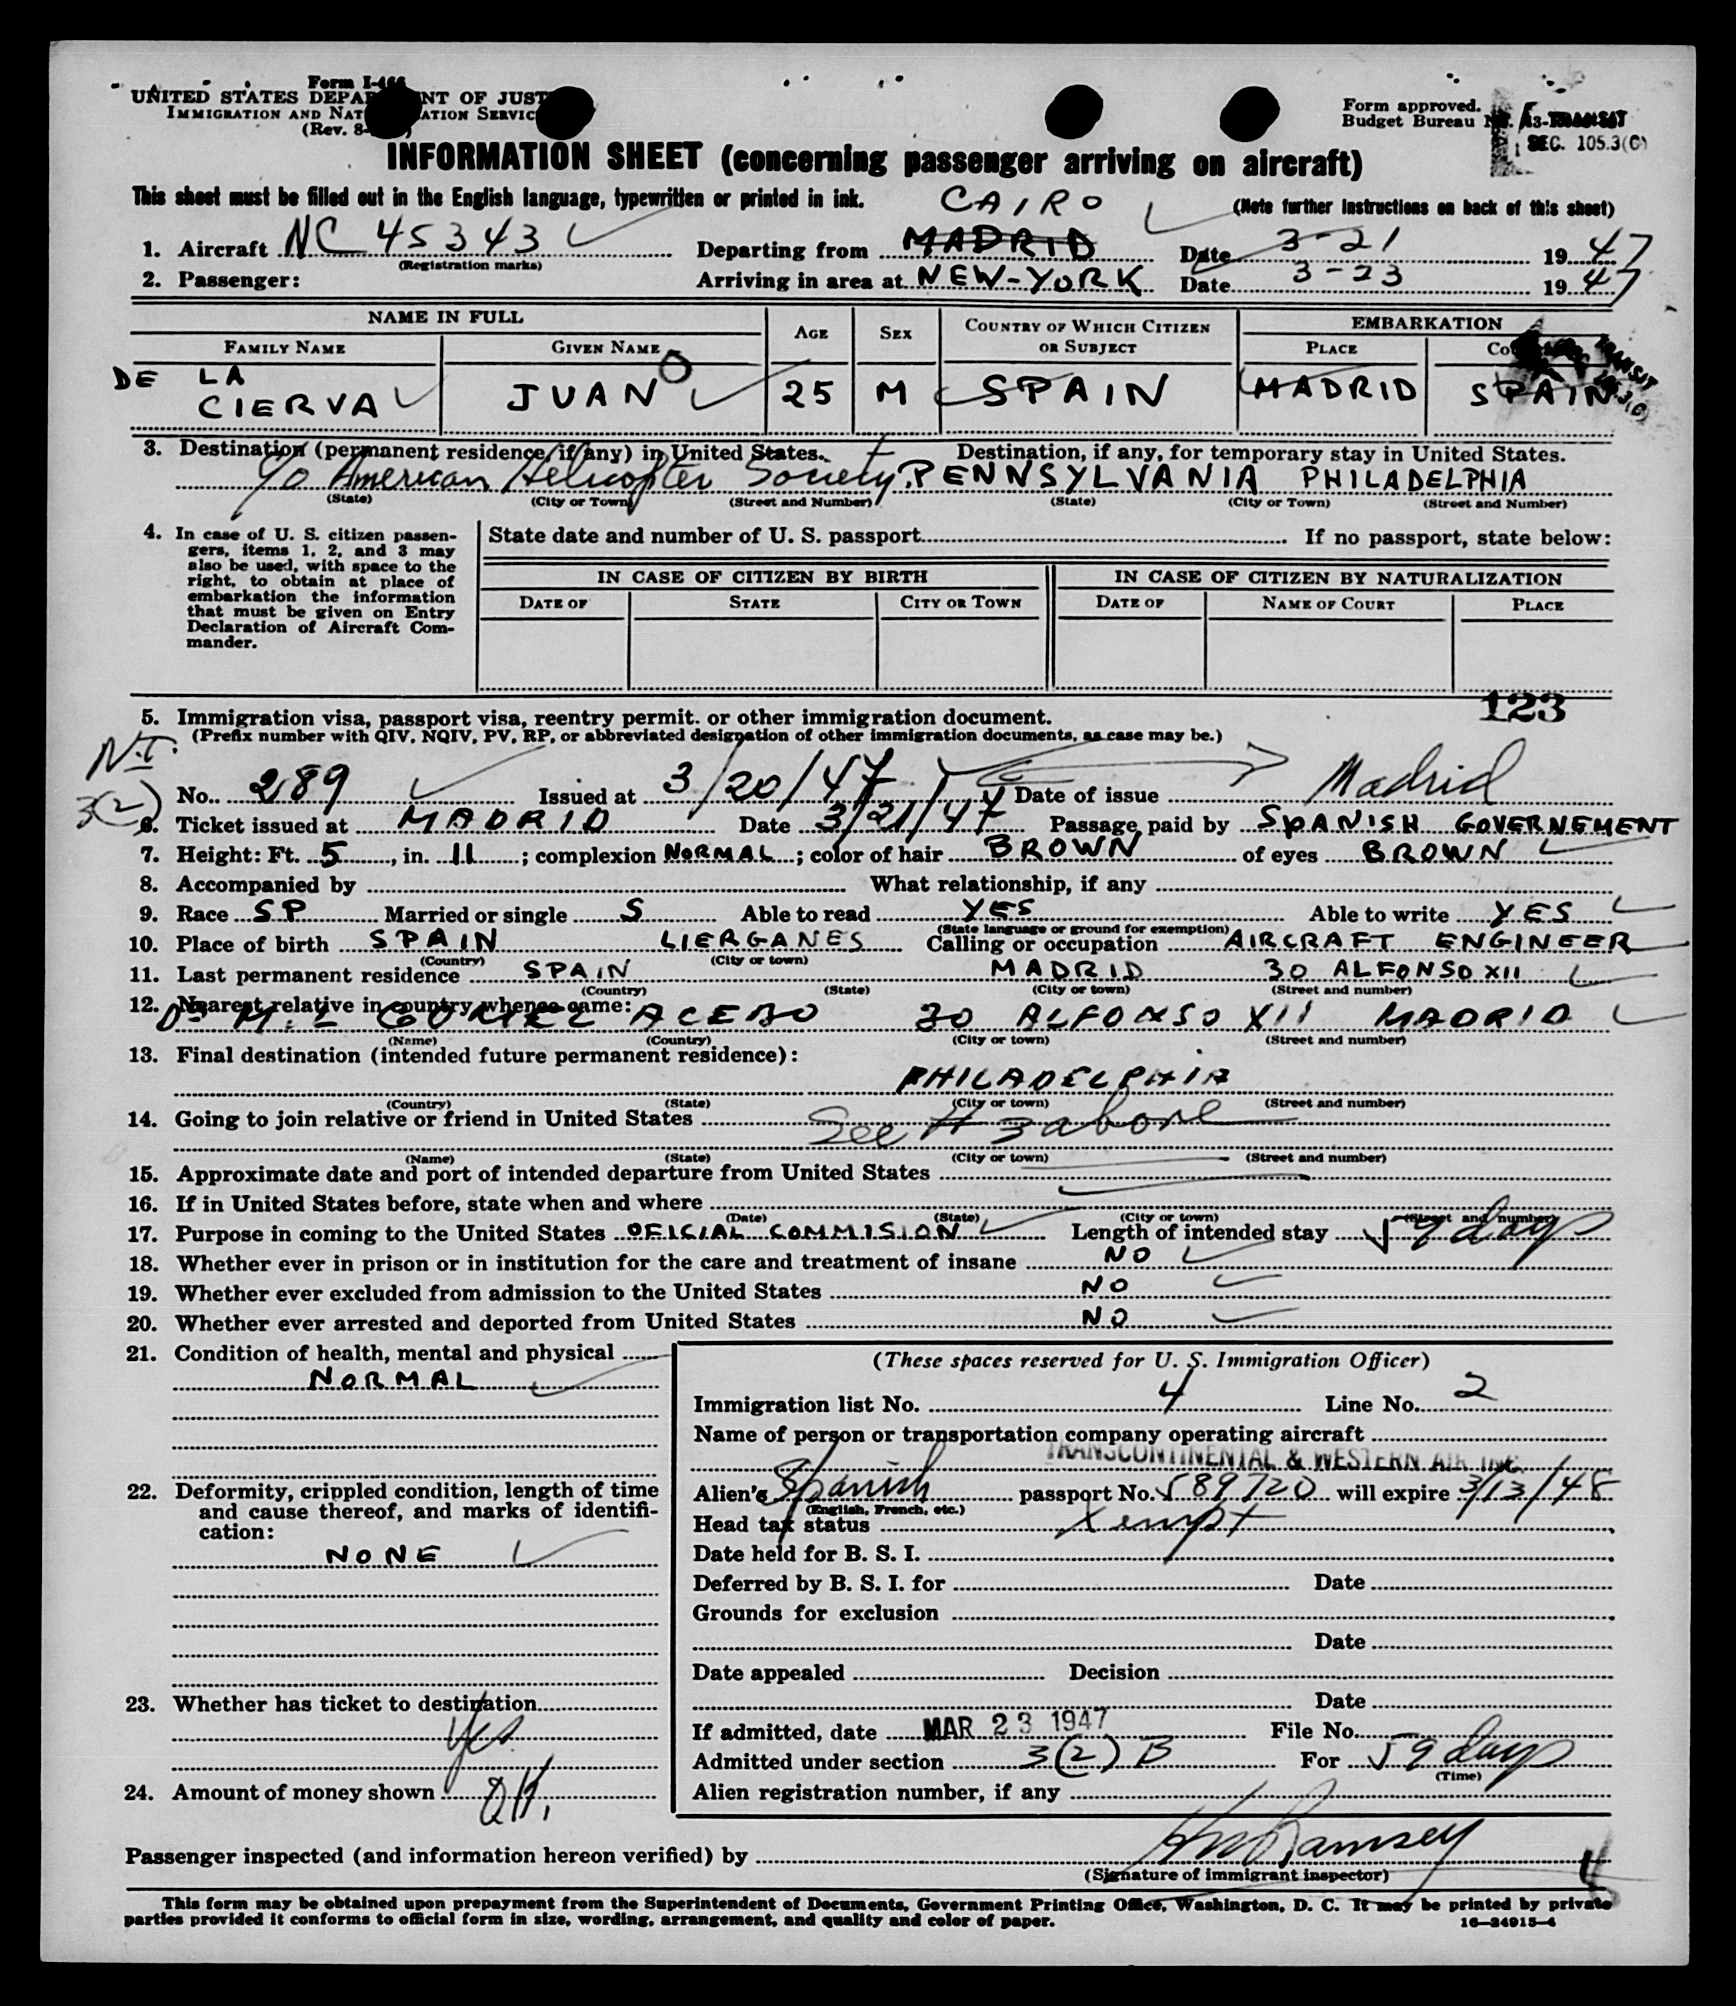 Form I-466
UNITED STATES DEPARTMENT OF JUSTICE
IMMIGRATION AND NATURALIZATION SERVICE
(Rev. 8-
Form approved.
Budget Bureau No.
SEC. 105.3(C)
INFORMATION SHEET (concerning passenger arriving on aircraft)
This sheet must be filled out in the English language, typewritten or printed in ink.
CAIRO
(Note further instructions on back of this sheet)
1. Aircraft NC 45343 Departing from MADRID Date 3-21 1947
(Registration marks)
2. Passenger: Arriving in area at NEW-YORK Date 3-23 1947
NAME IN FULL
AGE SEX COUNTRY OF WHICH CITIZEN OR SUBJECT EMBARKATION
FAMILY NAME GIVEN NAME PLACE
DE LA CIERVA JUAN 25 M SPAIN MADRID SPAIN
3. Destination (permanent residence, if any) in United States. Destination, if any, for temporary stay in United States.
c/o American Helicopter Society. PENNSYLVANIA PHILADELPHIA
(State) (City or Town) (Street and Number) (State) (City or Town) (Street and Number)
4. In case of U. S. citizen passen-
gers, items 1, 2, and 3 may
also be used, with space to the
right, to obtain at place of
embarkation the information
that must be given on Entry
Declaration of Aircraft Com-
mander.
State date and number of U. S. passport If no passport, state below:
IN CASE OF CITIZEN BY BIRTH IN CASE OF CITIZEN BY NATURALIZATION
DATE OF STATE CITY OR TOWN DATE OF NAME OF COURT PLACE
123
5. Immigration visa, passport visa, reentry permit. or other immigration document.
(Prefix number with QIV, NQIV, PV, RP, or abbreviated designation of other immigration documents, as case may be.)
3(2)
No. 289 Issued at 3/20/47 Date of issue Madrid
6. Ticket issued at MADRID Date 3/21/47 Passage paid by SPANISH GOVERNEMENT
7. Height: Ft. 5, in. 11; complexion NORMAL; color of hair BROWN of eyes BROWN
8. Accompanied by What relationship, if any
9. Race SP Married or single S Able to read YES Able to write YES
(State language or ground for exemption)
10. Place of birth SPAIN LIERGANES Calling or occupation AIRCRAFT ENGINEER
(Country) (City or town)
11. Last permanent residence SPAIN MADRID 30 ALFONSO XII
(Country) (State) (City or town) (Street and number)
12. Nearest relative in country whence came:
M.L GOMEZ ACEBO 30 ALFONSO XII MADRID
(Name) (Country) (City or town) (Street and number)
13. Final destination (intended future permanent residence):
PHILADELPHIA
(Country) (State) (City or town) (Street and number)
14. Going to join relative or friend in United States See # 3 above
(Name) (State) (City or town) (Street and number)
15. Approximate date and port of intended departure from United States
16. If in United States before, state when and where
(Date) (State) (City or town) (Street and number)
17. Purpose in coming to the United States OFICIAL COMMISION Length of intended stay 59 days
18. Whether ever in prison or in institution for the care and treatment of insane NO
19. Whether ever excluded from admission to the United States NO
20. Whether ever arrested and deported from United States NO
21. Condition of health, mental and physical
NORMAL
22. Deformity, crippled condition, length of time
and cause thereof, and marks of identifi-
cation:
NONE
23. Whether has ticket to destination
Yes
24. Amount of money shown OK.
(These spaces reserved for U. S. Immigration Officer)
Immigration list No. 4 Line No. 2
Name of person or transportation company operating aircraft
TRANSCONTINENTAL & WESTERN AIR INC.
Alien's Spanish passport No. 589720 will expire 3/13/48
(English, French, etc.)
Head tax status Xempt
Date held for B. S. I.
Deferred by B. S. I. for Date
Grounds for exclusion
Date
Date appealed Decision
Date
If admitted, date MAR 23 1947 File No.
Admitted under section 3(2) B For 59 days
(Time)
Alien registration number, if any
Passenger inspected (and information hereon verified) by Ramsey
(Signature of immigrant inspector)
4
This form may be obtained upon prepayment from the Superintendent of Documents, Government Printing Office, Washington, D. C. It may be printed by private
parties provided it conforms to official form in size, wording, arrangement, and quality and color of paper.
16-24915-4